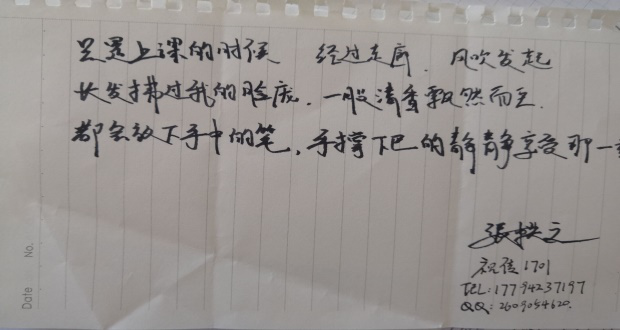 只要上课的时候 经过走廊.风吹发起
长发拂过我的脸庞.一股清香飘然而至.
都会放下手中的笔,手撑下巴的静静享受那一
張
1701
TEL:17794237197
QQ:2609054620.
Date No.